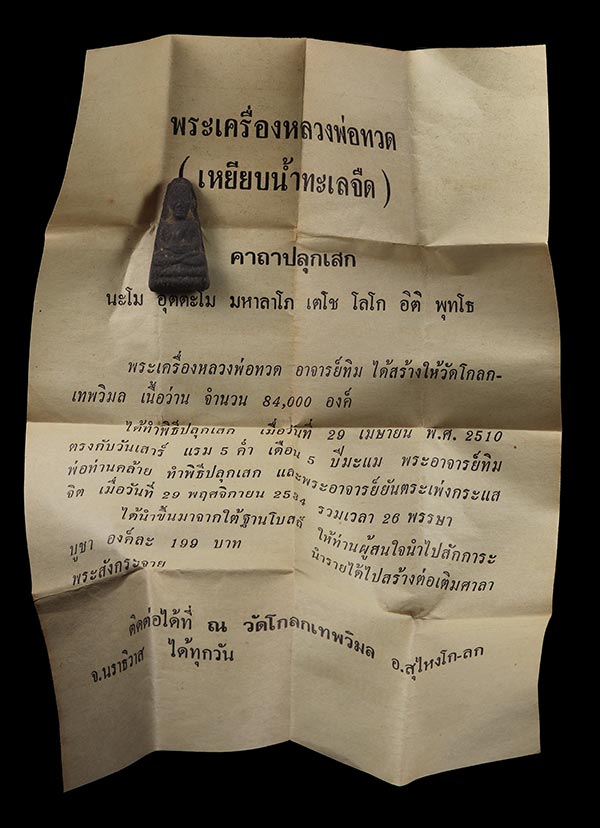 พระเครื่องหลวงพ่อทวด
(เหยียบน้ำทะเลจืด)
คาถาปลุกเสก
นะโม อุตตะโม มหาลาโภ เตโช โลโก อิติ พุทโธ
พระเครื่องหลวงพ่อทวด อาจารย์ทิม ได้สร้างให้วัดโกลก-
เทพวิมล เนื้อว่าน จำนวน 84,000 องค์
ได้ทำพิธีปลุกเสก เมื่อวันที่ 29 เมษายน พ.ศ. 2510
ตรงกับวันเสาร์ แรม 5 ค่ำ เดือน 5 ปีมะแม พระอาจารย์ทิม
พ่อท่านคล้าย ทำพิธีปลุกเสก และพระอาจารย์ยันตระเพ่งกระแส
จิต เมื่อวันที่ 29 พฤศจิกายน 2534 รวมเวลา 26 พรรษา
ได้นำขึ้นมาจากใต้ฐานโบสถ์ ให้ท่านผู้สนใจนำไปสักการะ
บูชา องค์ละ 199 บาท นำรายได้ไปสร้างต่อเติมศาลา
พระสังกระจาย
ติดต่อได้ที่ ณ วัดโกลกเทพวิมล อ.สุไหงโก-ลก
จ.นราธิวาส ได้ทุกวัน